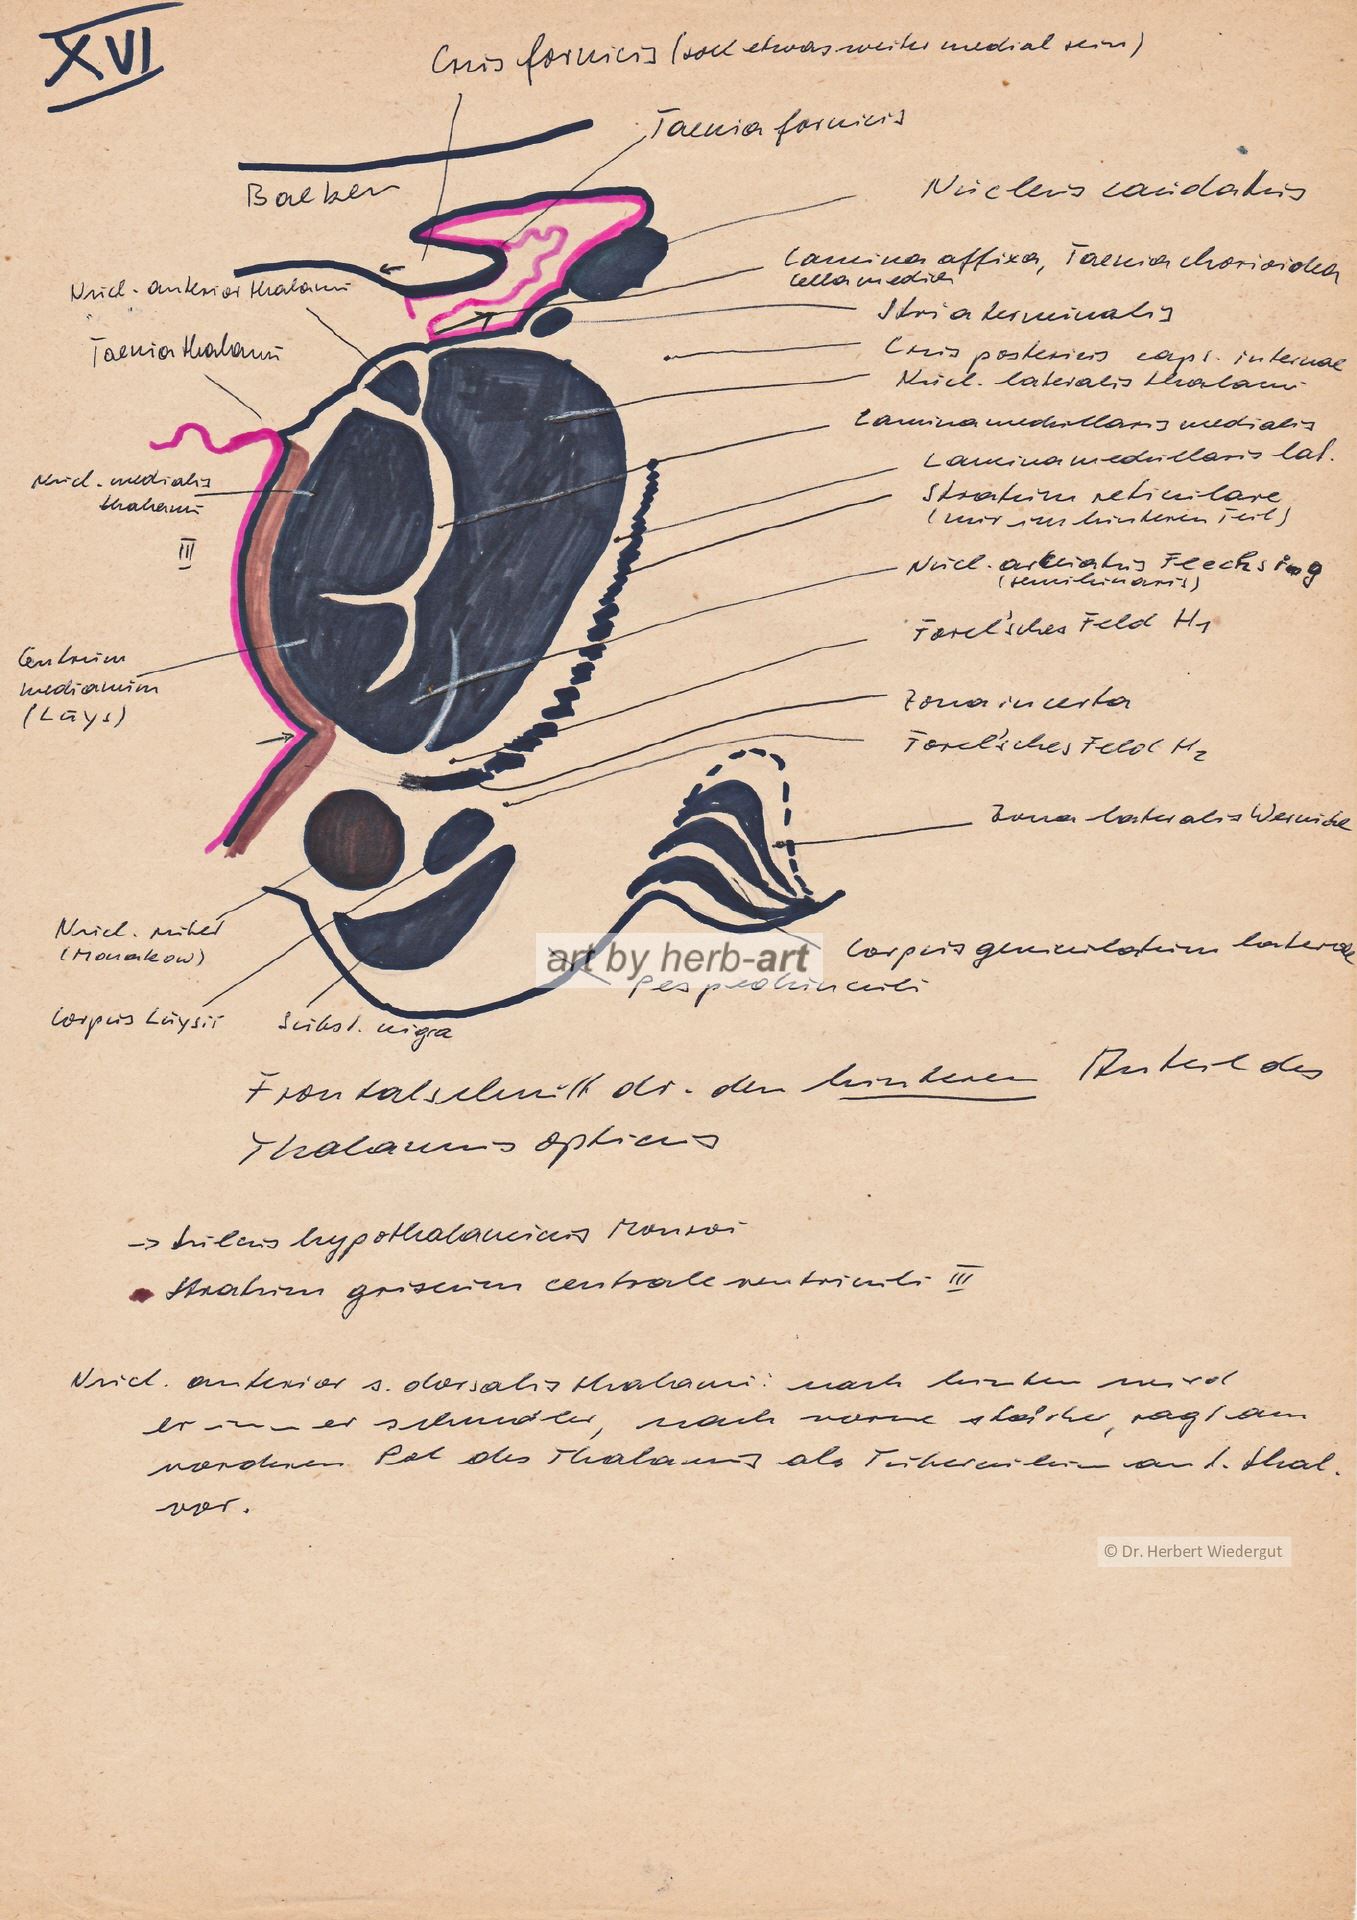 XVI
Crus fornicis (soll etwas weiter medial sein)
Taenia fornicis
Balken
Nucleus caudatus
Lamina affixa, Taenia chorioidea
cella media
Nucl. anterior thalami
Stria terminalis
Taenia thalami
Crus posterius caps. internae
Nucl. lateralis thalami
Lamina medullaris medialis
Lamina medullaris lat.
Nucl. medialis
thalami
Stratum reticulare
(nur im hinteren Teil)
III
Nucl. arcuatus Flechsig
(semilunaris)
Forel'sches Feld H1
Centrum
medianum
(Luys)
Zona incerta
Forel'sches Feld H2
Zona lateralis Wernicke
Nucl. ruber
(Monakow)
Corpus geniculatum laterale
art by herb-art
Pes pedunculi
Corpus Luysii
Subst. nigra
Frontalschnitt dr. den hinteren Anteil des
Thalamus opticus
-> Sulcus hypothalamicus Monroi
Stratum griseum centrale ventriculi III
Nucl. anterior s. dorsalis thalami: nach hinten wird
er immer schmäler, nach vorne stärker, ragt am
vorderen Pol des Thalamus als Tuberculum ant. thal.
vor.
© Dr. Herbert Wiedergut